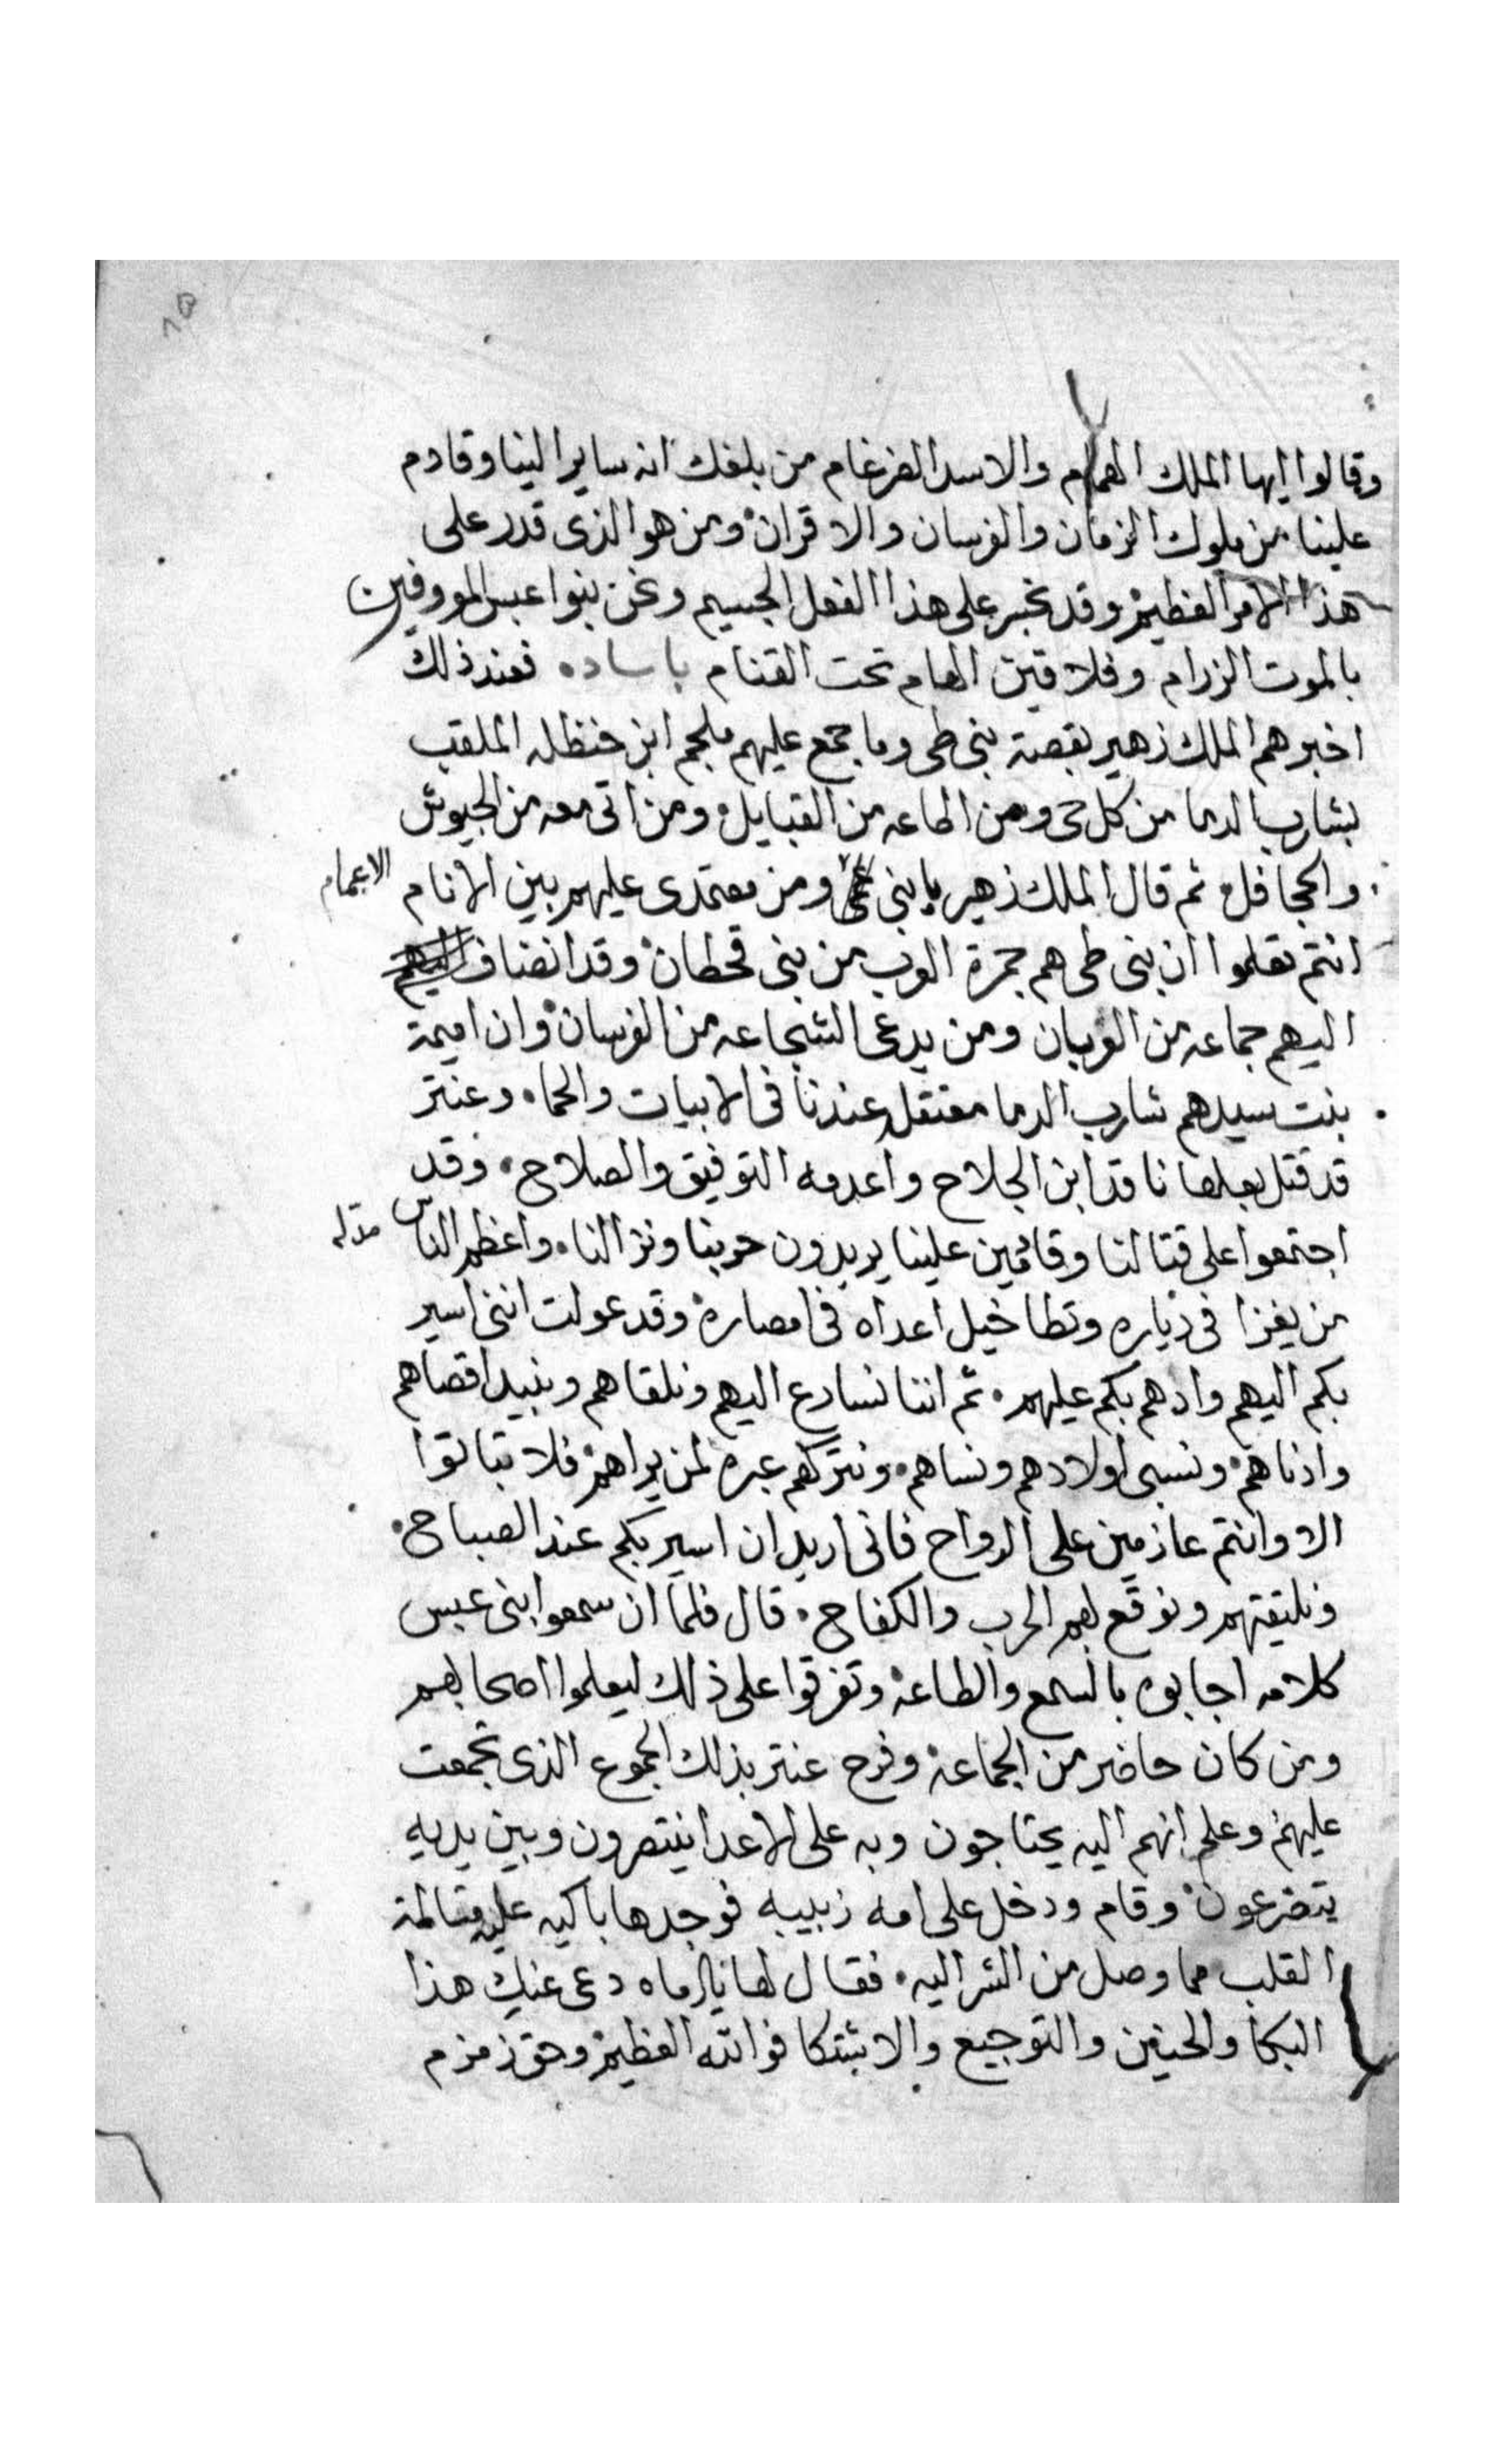 وقالوا ايها الملك الهمام والاسد الضرغام من بلغك انه ساير الينا وقادم
علينا من ملوك الزمان والفرسان والاقران ومن هو الذى قدر على
هذا الامر العظيم وقد تجبر على هذا الفعل الجسيم ونحن بنوا عبس المعروفين
بالموت الزرام وفلاقين الهام تحت القتام باساده فعند ذلك
اخبرهم الملك زهير بقصة بنى طى وما جمع عليهم ملجم ابن حنظله الملقب
بشارب الدما من كل حى ومن اطاعه من القبايل ومن اتى معه من الجيوش
والجحافل ثم قال الملك زهير يا بنى ومن معتمدى عليهم بين الانام الاعمام
انتم تعلموا ان بنى طى هم جمرة العرب من بنى قحطان وقد انضاف اليهم
اليهم جماعه من العربان ومن يدعى الشجاعه من الفرسان وان اميمة
بنت سيدهم شارب الدما معتقله عندنا فى الابيات والحما وعنتر
قد قتل بعلها ناقد ابن الجلاح واعدمه التوفيق والصلاح وقد
اجتمعوا على قتالنا وقادمين علينا يريدون حربنا ونزالنا واعظم الناس مذله
من يغزا فى دياره وتطا خيل اعداه فى امصاره وقد عولت اننى اسير
بكم اليهم وادهم بكم عليهم ثم اننا نسارع اليهم ونلقاهم ونبيد اقصاهم
وادناهم ونسبى اولادهم ونساهم ونتركهم عبره لمن يراهم فلا تباتوا
الا وانتم عازمين على الرواح فانى اريد ان اسير بكم عند الصباح
ونلتقتهم ونوقع بهم الحرب والكفاح قال فلما ان سمعوا بنى عبس
كلامه اجابوه بالسمع والطاعه وتفرقوا على ذلك ليعلموا اصحابهم
ومن كان حاضر من الجماعه وفرح عنتر بذلك الجموع الذى تجمعت
عليهم وعلم انهم اليه يحتاجون وبه على الاعدا ينتصرون وبين يديه
يتضرعون وقام ودخل على امه زبيبه فوجدها باكيه عليه متالمة
القلب مما وصل من الشر اليه فقال لها يا اماه دعى عنك هذا
البكا والحنين والتوجيع والاشتكا فوالله العظيم وحق زمزم